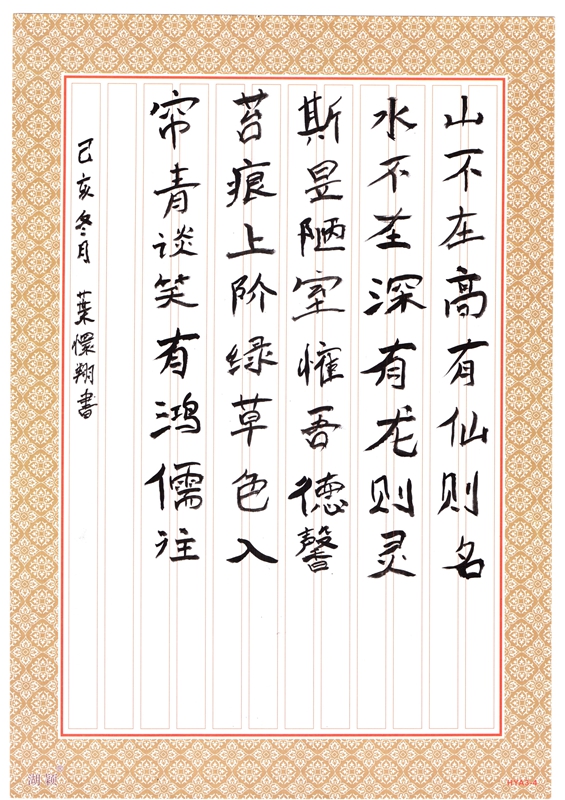 山不在高有仙则名
水不在深有龙则灵
斯是陋室惟吾德馨
苔痕上阶绿草色入
帘青谈笑有鸿儒往
己亥冬月 葉懷翔書
湖颖
HYA3-4